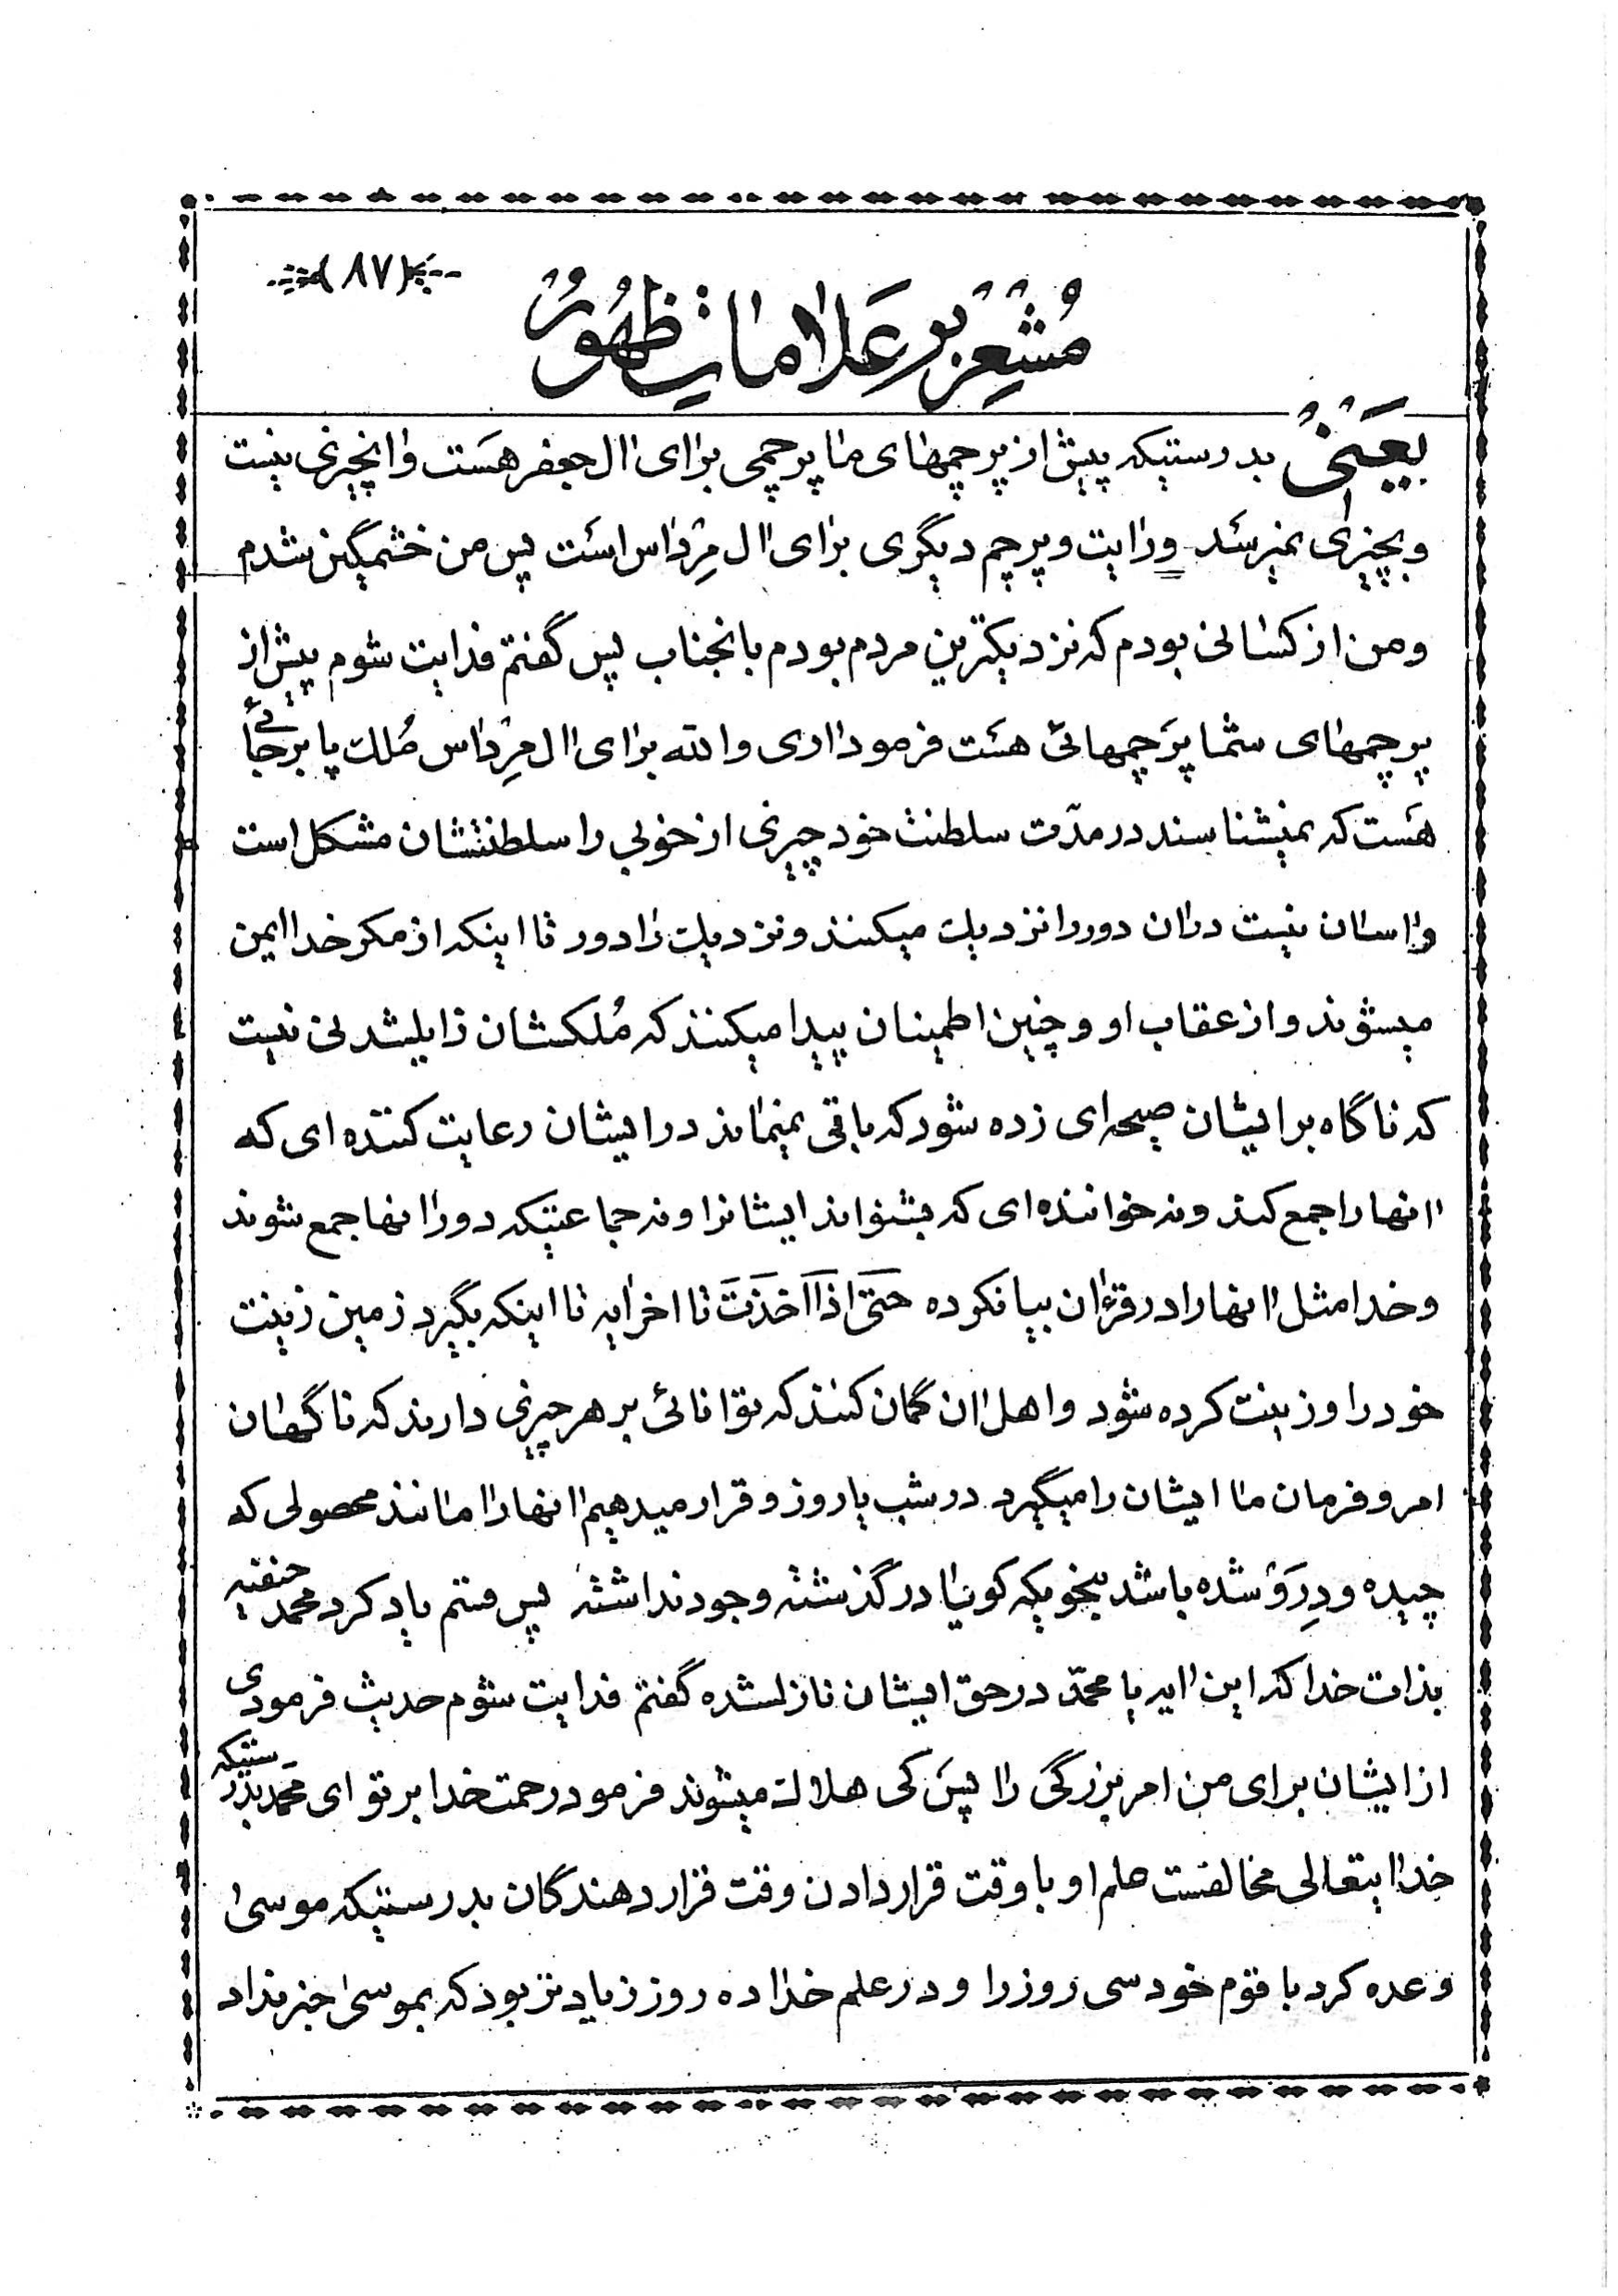 (۸۷)
مُشعِر بر عَلامات ظهُور
یَعنی بدرستیکه پیش از پرچمهای ما پرچمی برای ال جعفر هست و انچیزی نیست
و بچیزی نمیرسد و رایت و پرچم دیگری برای ال مِرداس است پس من خشمگین شدم
و من از کسانی بودم که نزدیکترین مردم بودم بانجناب پس گفتم فدایت شوم پیش از
پرچمهای شما پرچمهائی هست فرمود اری والله برای ال مِرداس مُلک پا برجائی
هست که نمیشناسند در مدّت سلطنت خود چیزی از خوبی را سلطنتشان مشکل است
و اسان نیست در ان دور را نزدیک میکنند و نزدیک را دور تا اینکه از مکر خدا ایمن
میشوند و از عقاب او و چنین اطمینان پیدا میکنند که مُلکشان زایلشدنی نیست
که ناگاه بر ایشان صیحه ای زده شود که باقی نمیماند در ایشان رعایت کننده ای که
انها را جمع کند و نه خواننده ای که بشنواند ایشانرا و نه جماعتیکه دور انها جمع شوند
و خدا مثل انها را در قرءان بیانکرده حَتّیٰ اذَا اَخَذَتَ تا اخر ایه تا اینکه بگیرد زمین زینت
خود را و زینت کرده شود و اهل ان گمان کنند که توانائی بر هر چیزی دارند که ناگهان
امر و فرمان ما ایشان را میگیرد در شب یا روز و قرار میدهیم انها را مانند محصولی که
چیده و دِرَو شده باشد بنحویکه گویا در گذشته وجود نداشته پس قسم یاد کرد محمد حنفیه
بذات خدا که این ایه یا محمّد در حق ایشان نازلشده گفتم فدایت شوم حدیث فرمودی
از ایشان برای من امر بزرگی را پس کی هلاک میشوند فرمود رحمت خدا بر تو ای محمد بدرستیکه
خدایتعالی مخالفست علم او با وقت قرار دادن وقت قرار دهندگان بدرستیکه موسیٰ
وعده کرد با قوم خود سی روز را و در علم خدا ده روز زیادتر بود که بموسیٰ خبر نداد